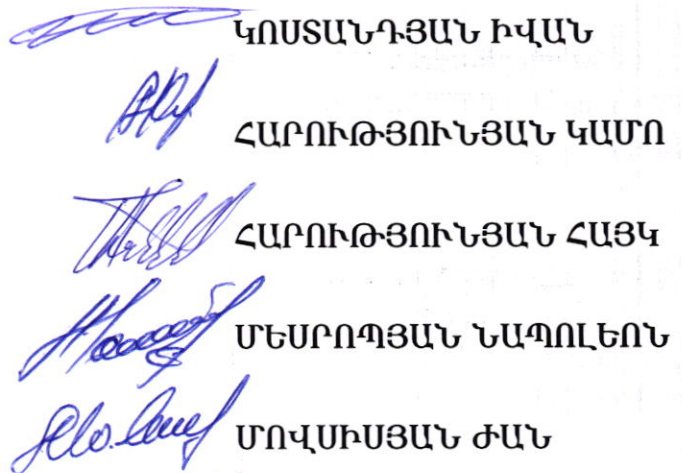 ԿՈՍՏԱՆԴՅԱՆ ԻՎԱՆ
ՀԱՐՈՒԹՅՈՒՆՅԱՆ ԿԱՄՈ
ՀԱՐՈՒԹՅՈՒՆՅԱՆ ՀԱՅԿ
ՄԵՍՐՈՊՅԱՆ ՆԱՊՈԼԵՈՆ
ՄՈՎՍԻՍՅԱՆ ԺԱՆ